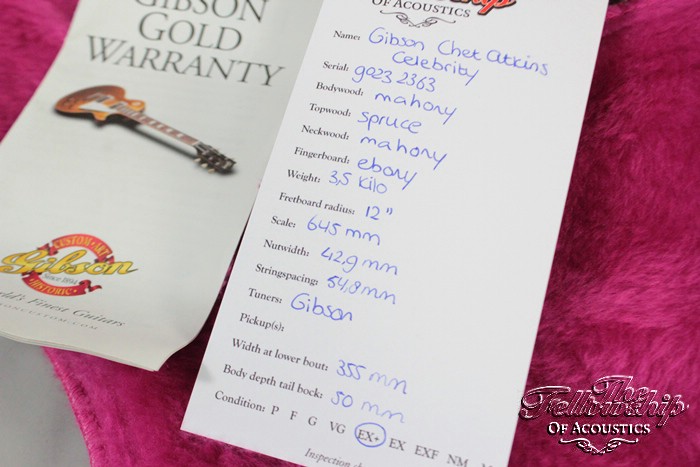 GIBSON
GOLD
WARRANTY
CUSTOM · ART
Gibson
Since 1894
HISTORIC
World's Finest Guitars
OF ACOUSTICS
Name: Gibson Chet Atkins
Celebrity
Serial: 9023 2363
Bodywood: mahony
Topwood: spruce
Neckwood: mahony
Fingerboard: ebony
Weight: 3,5 Kilo
Fretboard radius: 12"
Scale: 645 mm
Nutwidth: 42,9 mm
Stringspacing: 54,8 mm
Tuners: Gibson
Pickup(s):
Width at lower bout: 355 mm
Body depth tail bock: 50 mm
Condition: P F G VG EX+ EX EXF NM
Inspection
The
Fellowship
OF ACOUSTICS